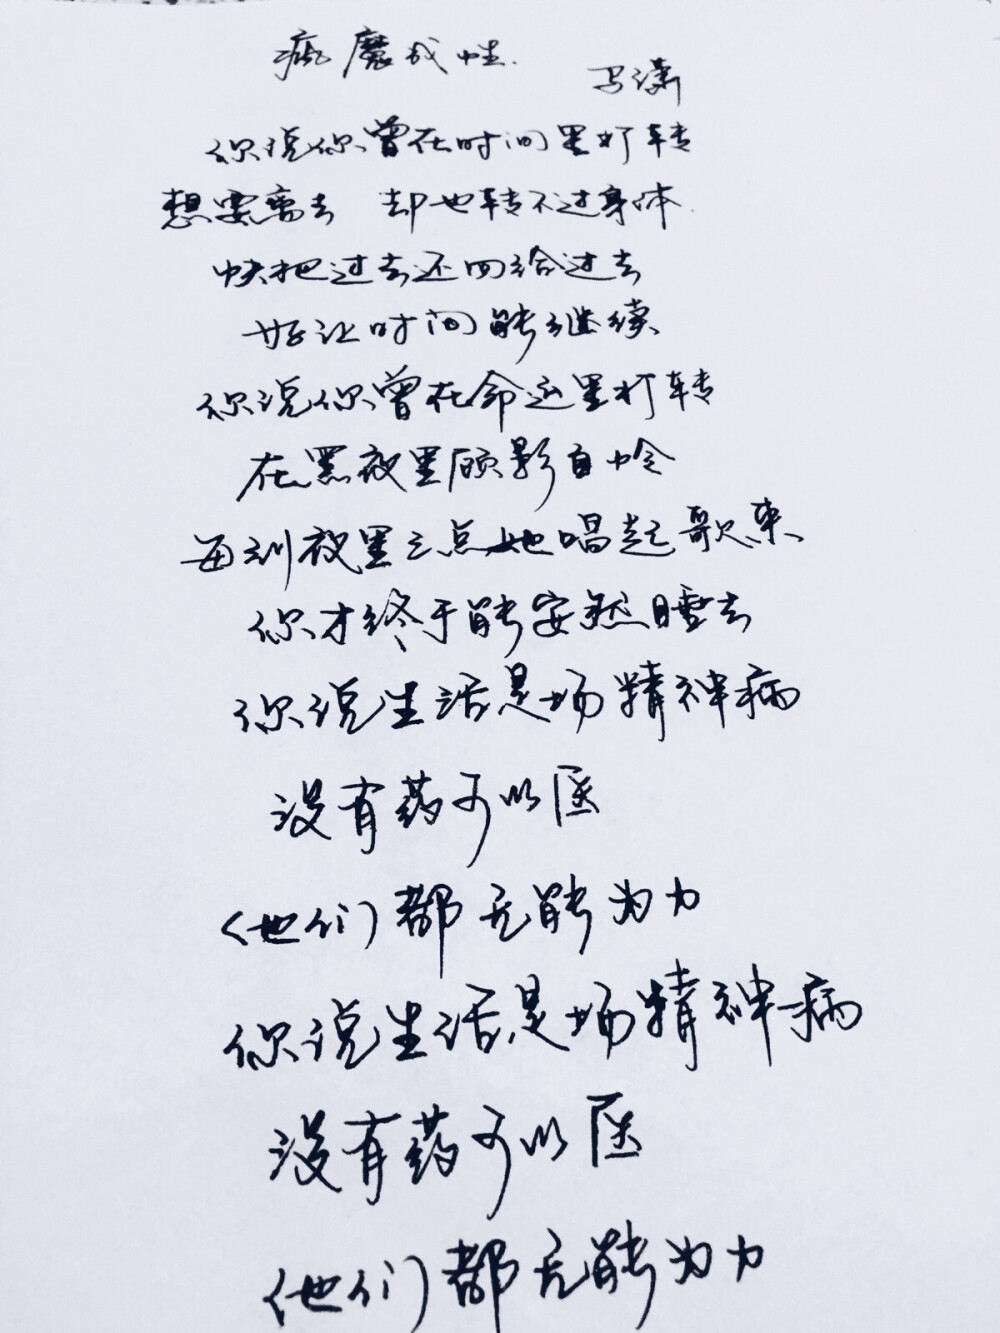 疯魔成性
马潇
你说你曾在时间里打转
想要离去 却也转不过身体
快把过去还回给过去
好让时间能继续
你说你曾在命运里打转
在黑夜里顾影自怜
每到夜里三点她唱起歌来
你才终于能安然睡去
你说生活是场精神病
没有药可以医
他们都无能为力
你说生活是场精神病
没有药可以医
他们都无能为力